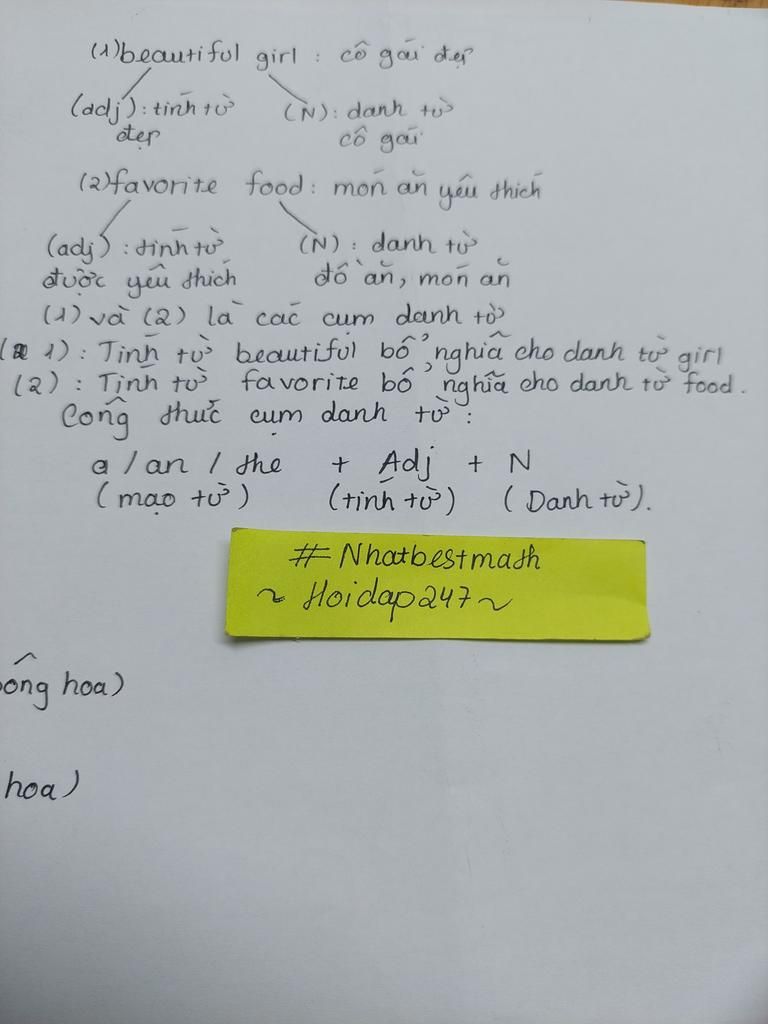 (1) beautiful girl : cô gái đẹp
(adj) : tính từ (N) : danh từ
đẹp cô gái
(2) favorite food : món ăn yêu thích
(adj) : tính từ (N) : danh từ
được yêu thích đồ ăn, món ăn
(1) và (2) là các cụm danh từ
1) : Tính từ beautiful bổ nghĩa cho danh từ girl
(2) : Tính từ favorite bổ nghĩa cho danh từ food.
Công thức cụm danh từ :
a / an / the + Adj + N
(mạo từ) (tính từ) (Danh từ).
#Nhatbestmath
~ Hoidap247 ~
bông hoa)
hoa)